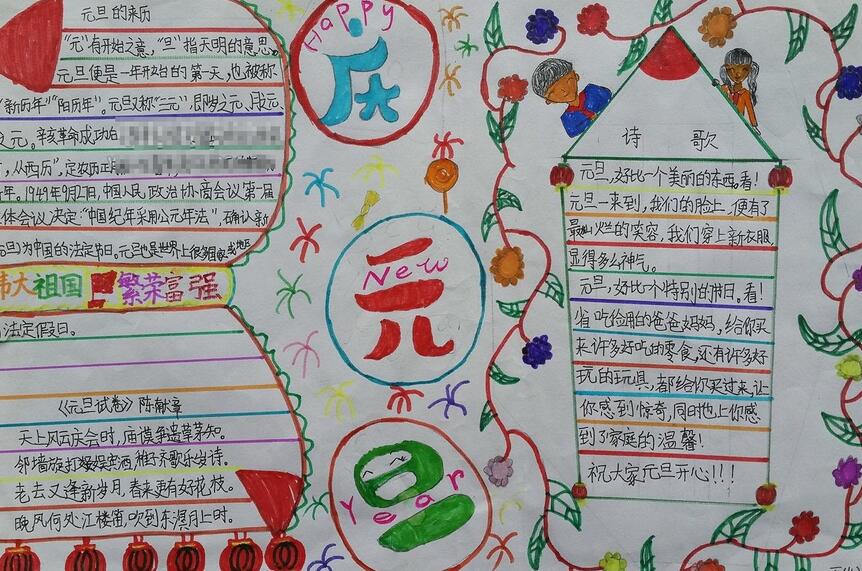 元旦的来历
"元"有开始之意，"旦"指天明的意思。
元旦便是一年开始的第一天，也被称
"新历年""阳历年"。元旦又称"三元"，即岁之元、月之
之元。辛亥革命成功后
，从西历"，定农历正月
年。1949年9月27日，中国人民政治协商会议第一届
体会议决定："中国纪年采用公元年法"，确认新
元旦)为中国的法定节日。元旦也是世界上很多国家或地区
伟大祖国 繁荣富强
法定假日。
《元旦试卷》陈献章
天上风云庆会时，庙谟争遗草茅知。
邻墙旋打娱宾酒，稚齐歌乐岁诗。
老去又逢新岁月，春来更有好花枝。
晚风何处江楼笛，吹到东溟月上时。
Happy
庆
New
元
Year
旦
诗 歌
元旦，好比一个美丽的东西。看！
元旦一来到，我们的脸上，便有了
最灿烂的笑容，我们穿上新衣服，
显得多么神气。
元旦，好比一个特别的节日。看！
省吃俭用的爸爸妈妈，给你买
来许多好吃的零食，还有许多好
玩的玩具，都给你买过来，让
你感到惊奇，同时也上你感
到了家庭的温馨！
祝大家元旦开心！！！